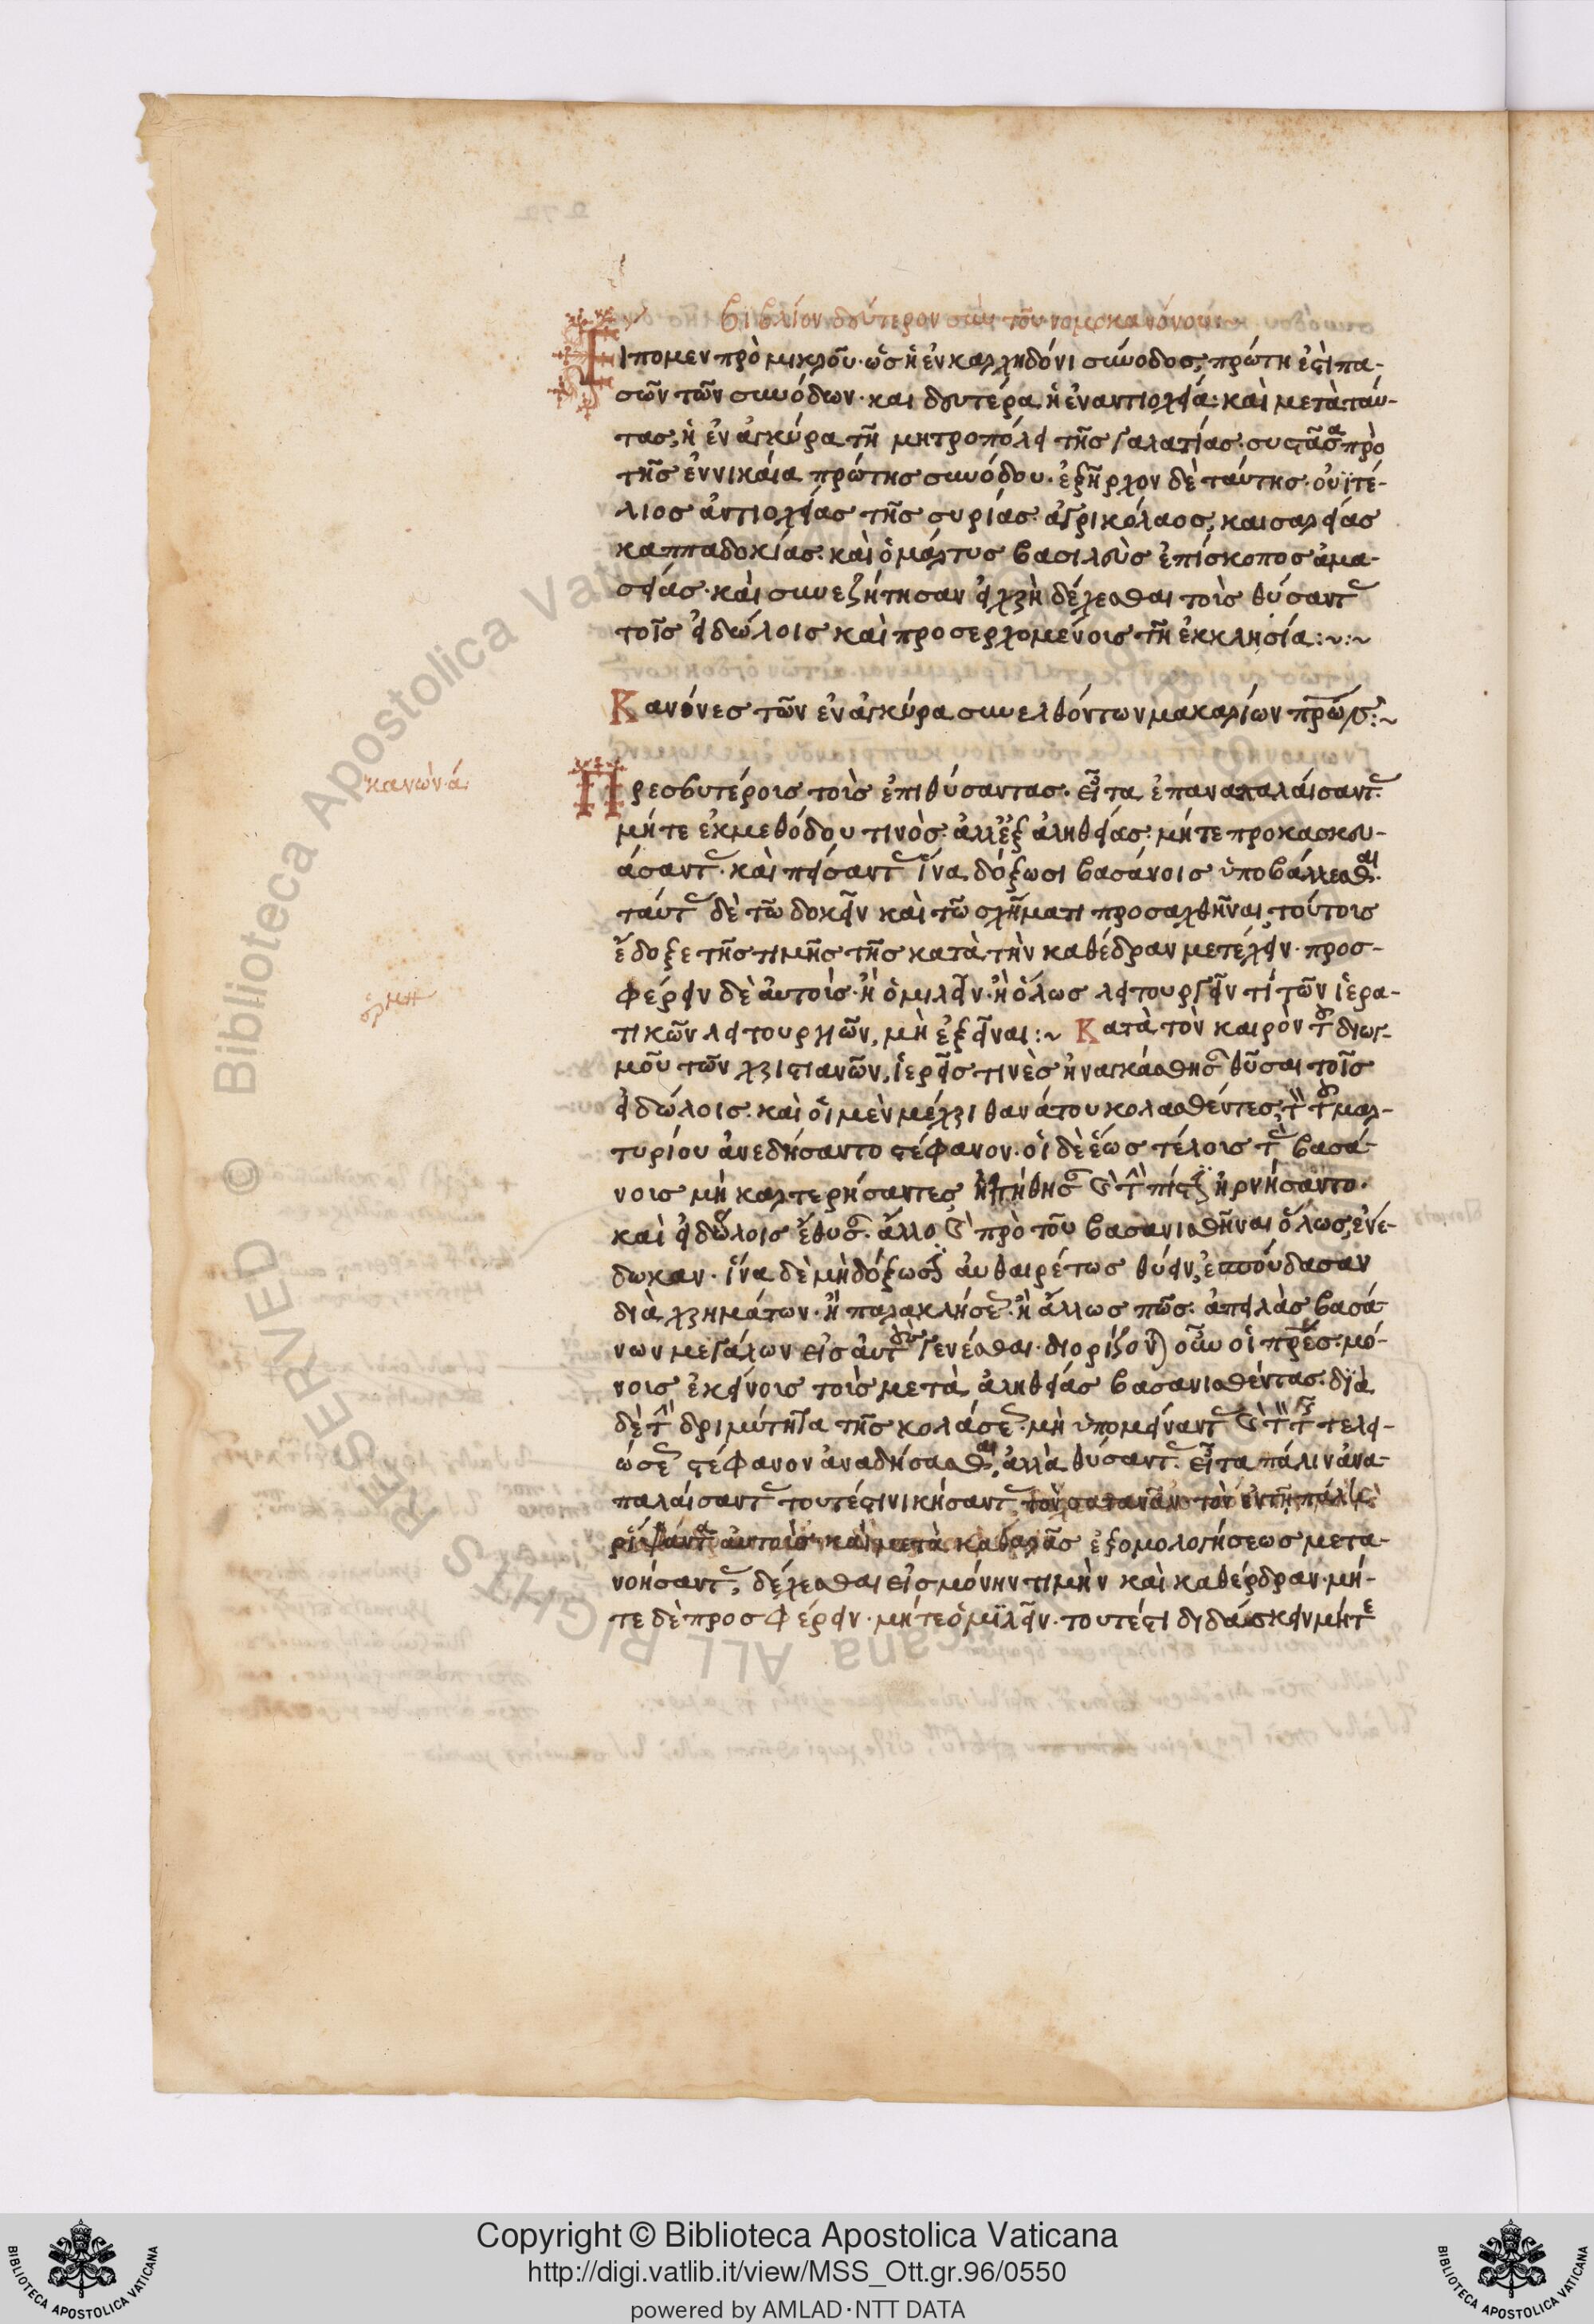 βιβλίον δεύτερον σὺν τοῦ νομοκανόνου
Εἴπομεν πρὸ μικροῦ· ὡς ἡ ἐν καλχηδόνι σύνοδος, πρώτη ἐστὶ πα-
σῶν τῶν συνόδων· και δευτέρα ἡ ἐν αντιοχεία· καὶ μετὰ ταύ-
τας, ἡ ἐν ἀγκύρα τῆ μητροπόλει τῆς γαλατίας· συστᾶσα πρὸ
τῆς ἐν νικαία πρώτης συνόδου· ἐξῆρχον δὲ ταύτης· οὐϊτέ-
λιος ἀντιοχείας τῆς συρίας· ἀγρικόλαος, καισαρείας
καππαδοκίας· καὶ ὁ μάρτυς βασιλεὺς ἐπίσκοπος ἀμα-
σείας· καὶ συνεζήτησαν εἰ χρὴ δέχεσθαι τοὶς θύσαντ
τοῖς εἰδώλοις καὶ προσερχομένοις τῆ ἐκκλησία :~:~
Κανόνες τῶν ἐν ἀγκύρα συνελθόντων μακαρίων πρων :~
κανὼν α
Πρεσβυτέροις τοὶς ἐπιθύσαντας· εἶτα ἐπαναπαλαίσαντ
μήτε ἐκ μεθόδου τινὸς· ἀλλ' ἐξ ἀληθείας· μήτε προκασκευ-
άσαντ· καὶ πείσαντ ἵνα δόξωσι βασάνοις ὑποβάλλεσθαι·
ταύτ δὲ τῶ δοκεῖν καὶ τῶ σχήματι προσαχθῆναι, τούτοις
ἔδοξε τῆς τιμῆς τῆς κατὰ τὴν καθέδραν μετέχειν· προσ-
φέρειν δὲ ἀυτοὶς· ἢ ὁμιλεῖν· ἢ ὅλως λειτουργεῖν τί τῶν ἱερα-
τικῶν λειτουργιῶν, μὴ ἐξεῖναι :~ Κατὰ τὸν καιρὸν τοῦ διωγ-
ἑρμη
μοῦ τῶν χριστιανῶν, ἱερεῖς τινὲς ἠναγκάσθησ θῦσαι τοῖς
εἰδώλοις· καὶ οἱ μὲν μέχρι θανάτου κολασθέντες, τὸν τοῦ μαρ-
τυρίου ἀνεδήσαντο στέφανον· οἱ δὲ ἕως τέλοις τ βασά-
νοις μὴ καρτερήσαντες ἡττήθησ καὶ τὴν πίστιν ἠρνήσαντο·
καὶ εἰδώλοις ἔθυσ· ἄλλοι καὶ πρὸ τοῦ βασανισθῆναι ὅλως, ἐνέ-
δωκαν· ἵνα δὲ μὴ δόξωσι ἀυθαιρέτως θύειν, ἐσπούδασαν
διὰ χρημάτων· ἢ παρακλήσε· ἢ ἄλλως πῶς· ἀπειλὰς βασά-
νων μεγάλων εἰς ἀυτοὺς γενέσθαι· διορίζοντ οὖν οἱ πρες· μό-
νοις ἐκείνοις τοὶς μετὰ ἀληθείας βασανισθέντας· διὰ
δὲ τὴν δριμύτητα τῆς κολάσε· μὴ ὑπομείναντ καὶ τὸν τῆς τελει-
ώσε στέφανον ἀναδήσασθαι, ἀλλὰ θύσαντ· εἶτα πάλιν ἀνα-
παλαίσαντ τουτέστι νικήσαντ τὸν σατανᾶν τὸν ἐν τῆ πάλη
ρίψαντα ἀυτοὶς καὶ μετὰ καθαρᾶς ἐξομολογήσεως μετα-
νοήσαντ, δέχεσθαι εἰς μόνην τιμὴν καὶ καθέρδραν· μή-
τε δὲ προσφέρειν· μήτε ὁμϊλεῖν· τουτέστι διδάσκειν μήτε
© Biblioteca Apostolica Vaticana ALL RIGHTS RESERVED
Copyright © Biblioteca Apostolica Vaticana
http://digi.vatlib.it/view/MSS_Ott.gr.96/0550
powered by AMLAD·NTT DATA
BIBLIOTECA APOSTOLICA VATICANA
BIBLIOTECA APOSTOLICA VATICANA